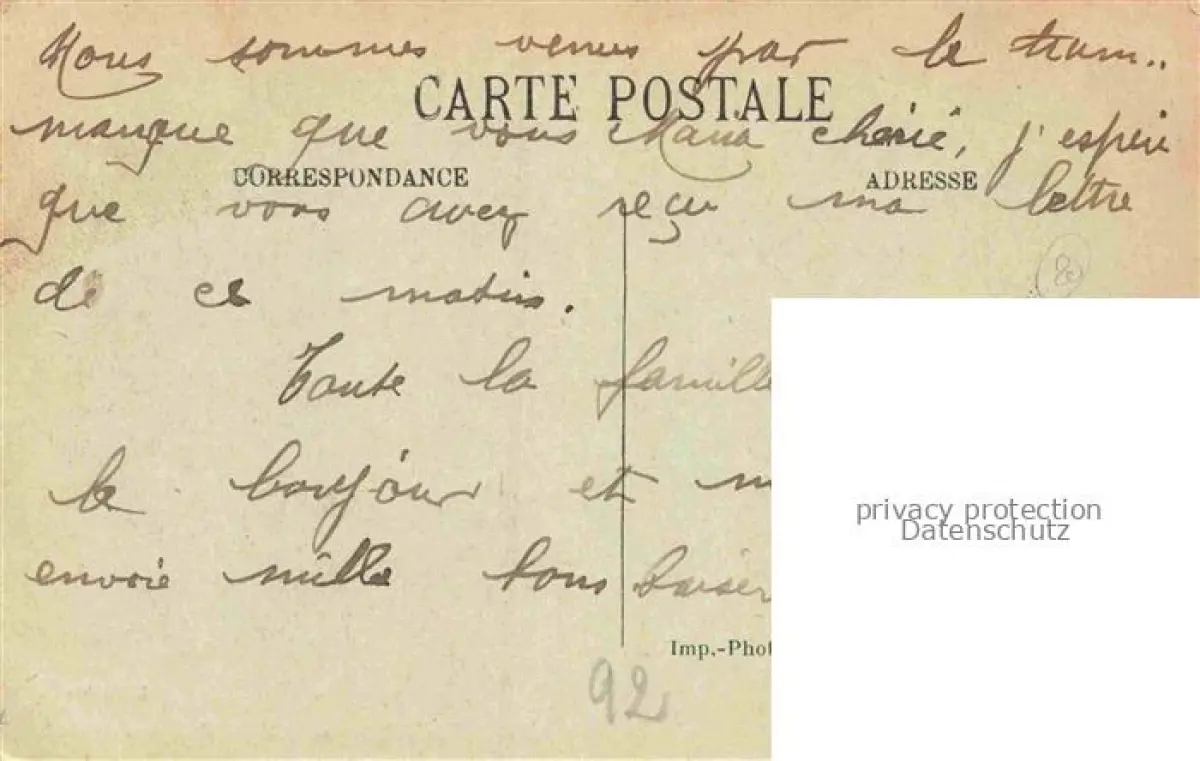 Nous sommes venus par le tram..
CARTE POSTALE
manque que vous Mana chérie, j'espère
CORRESPONDANCE
ADRESSE
que vous avez reçu ma lettre
de ce matin.
80
Toute la famille
le bonjour et m
privacy protection
Datenschutz
envoie mille bons baiser
Imp.-Phot
92